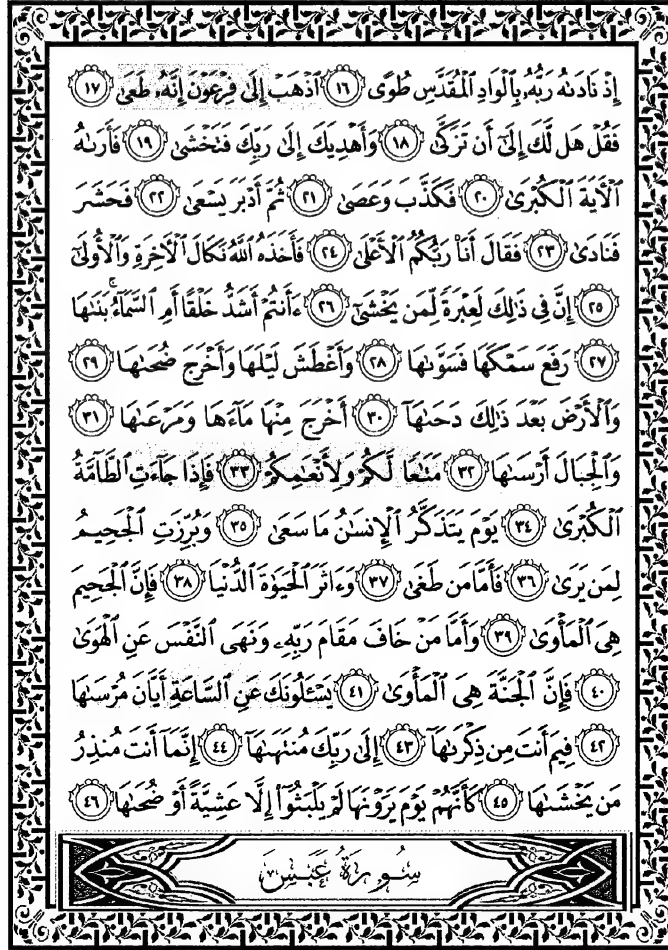 إِذْ نَادَىٰهُ رَبُّهُۥ بِٱلْوَادِ ٱلْمُقَدَّسِ طُوًى ١٦ ٱذْهَبْ إِلَىٰ فِرْعَوْنَ إِنَّهُۥ طَغَىٰ ١٧
فَقُلْ هَل لَّكَ إِلَىٰٓ أَن تَزَكَّىٰ ١٨ وَأَهْدِيَكَ إِلَىٰ رَبِّكَ فَتَخْشَىٰ ١٩ فَأَرَىٰهُ
ٱلْـَٔايَةَ ٱلْكُبْرَىٰ ٢٠ فَكَذَّبَ وَعَصَىٰ ٢١ ثُمَّ أَدْبَرَ يَسْعَىٰ ٢٢ فَحَشَرَ
فَنَادَىٰ ٢٣ فَقَالَ أَنَا۠ رَبُّكُمُ ٱلْأَعْلَىٰ ٢٤ فَأَخَذَهُ ٱللَّهُ نَكَالَ ٱلْـَٔاخِرَةِ وَٱلْأُولَىٰٓ
٢٥ إِنَّ فِى ذَٰلِكَ لَعِبْرَةً لِّمَن يَخْشَىٰٓ ٢٦ ءَأَنتُمْ أَشَدُّ خَلْقًا أَمِ ٱلسَّمَآءُ ۚ بَنَىٰهَا
٢٧ رَفَعَ سَمْكَهَا فَسَوَّىٰهَا ٢٨ وَأَغْطَشَ لَيْلَهَا وَأَخْرَجَ ضُحَىٰهَا ٢٩
وَٱلْأَرْضَ بَعْدَ ذَٰلِكَ دَحَىٰهَآ ٣٠ أَخْرَجَ مِنْهَا مَآءَهَا وَمَرْعَىٰهَا ٣١
وَٱلْجِبَالَ أَرْسَىٰهَا ٣٢ مَتَـٰعًا لَّكُمْ وَلِأَنْعَـٰمِكُمْ ٣٣ فَإِذَا جَآءَتِ ٱلطَّآمَّةُ
ٱلْكُبْرَىٰ ٣٤ يَوْمَ يَتَذَكَّرُ ٱلْإِنسَـٰنُ مَا سَعَىٰ ٣٥ وَبُرِّزَتِ ٱلْجَحِيمُ
لِمَن يَرَىٰ ٣٦ فَأَمَّا مَن طَغَىٰ ٣٧ وَءَاثَرَ ٱلْحَيَوٰةَ ٱلدُّنْيَا ٣٨ فَإِنَّ ٱلْجَحِيمَ
هِىَ ٱلْمَأْوَىٰ ٣٩ وَأَمَّا مَنْ خَافَ مَقَامَ رَبِّهِۦ وَنَهَى ٱلنَّفْسَ عَنِ ٱلْهَوَىٰ
٤٠ فَإِنَّ ٱلْجَنَّةَ هِىَ ٱلْمَأْوَىٰ ٤١ يَسْـَٔلُونَكَ عَنِ ٱلسَّاعَةِ أَيَّانَ مُرْسَىٰهَا
٤٢ فِيمَ أَنتَ مِن ذِكْرَىٰهَآ ٤٣ إِلَىٰ رَبِّكَ مُنتَهَىٰهَآ ٤٤ إِنَّمَآ أَنتَ مُنذِرُ
مَن يَخْشَىٰهَا ٤٥ كَأَنَّهُمْ يَوْمَ يَرَوْنَهَا لَمْ يَلْبَثُوٓا۟ إِلَّا عَشِيَّةً أَوْ ضُحَىٰهَا ٤٦
سُورَةُ عَبَسَ